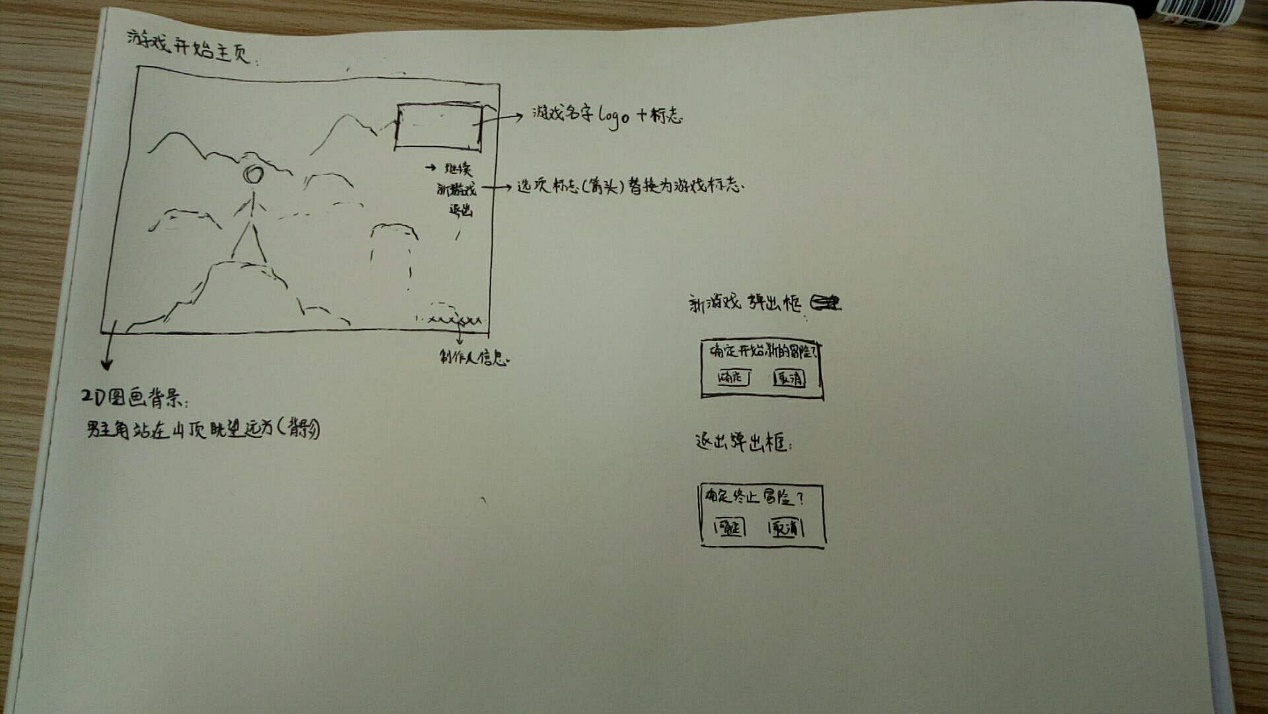 游戏开始主页:
游戏名字logo+标志
→继续
新游戏
退出
选项标志(箭头)替换为游戏标志.
制作人信息.
2D图画背景:
男主角站在山顶眺望远方(背影)
新游戏弹出框:
确定开始新的冒险?
确定 取消
退出弹出框:
确定终止冒险?
确定 取消